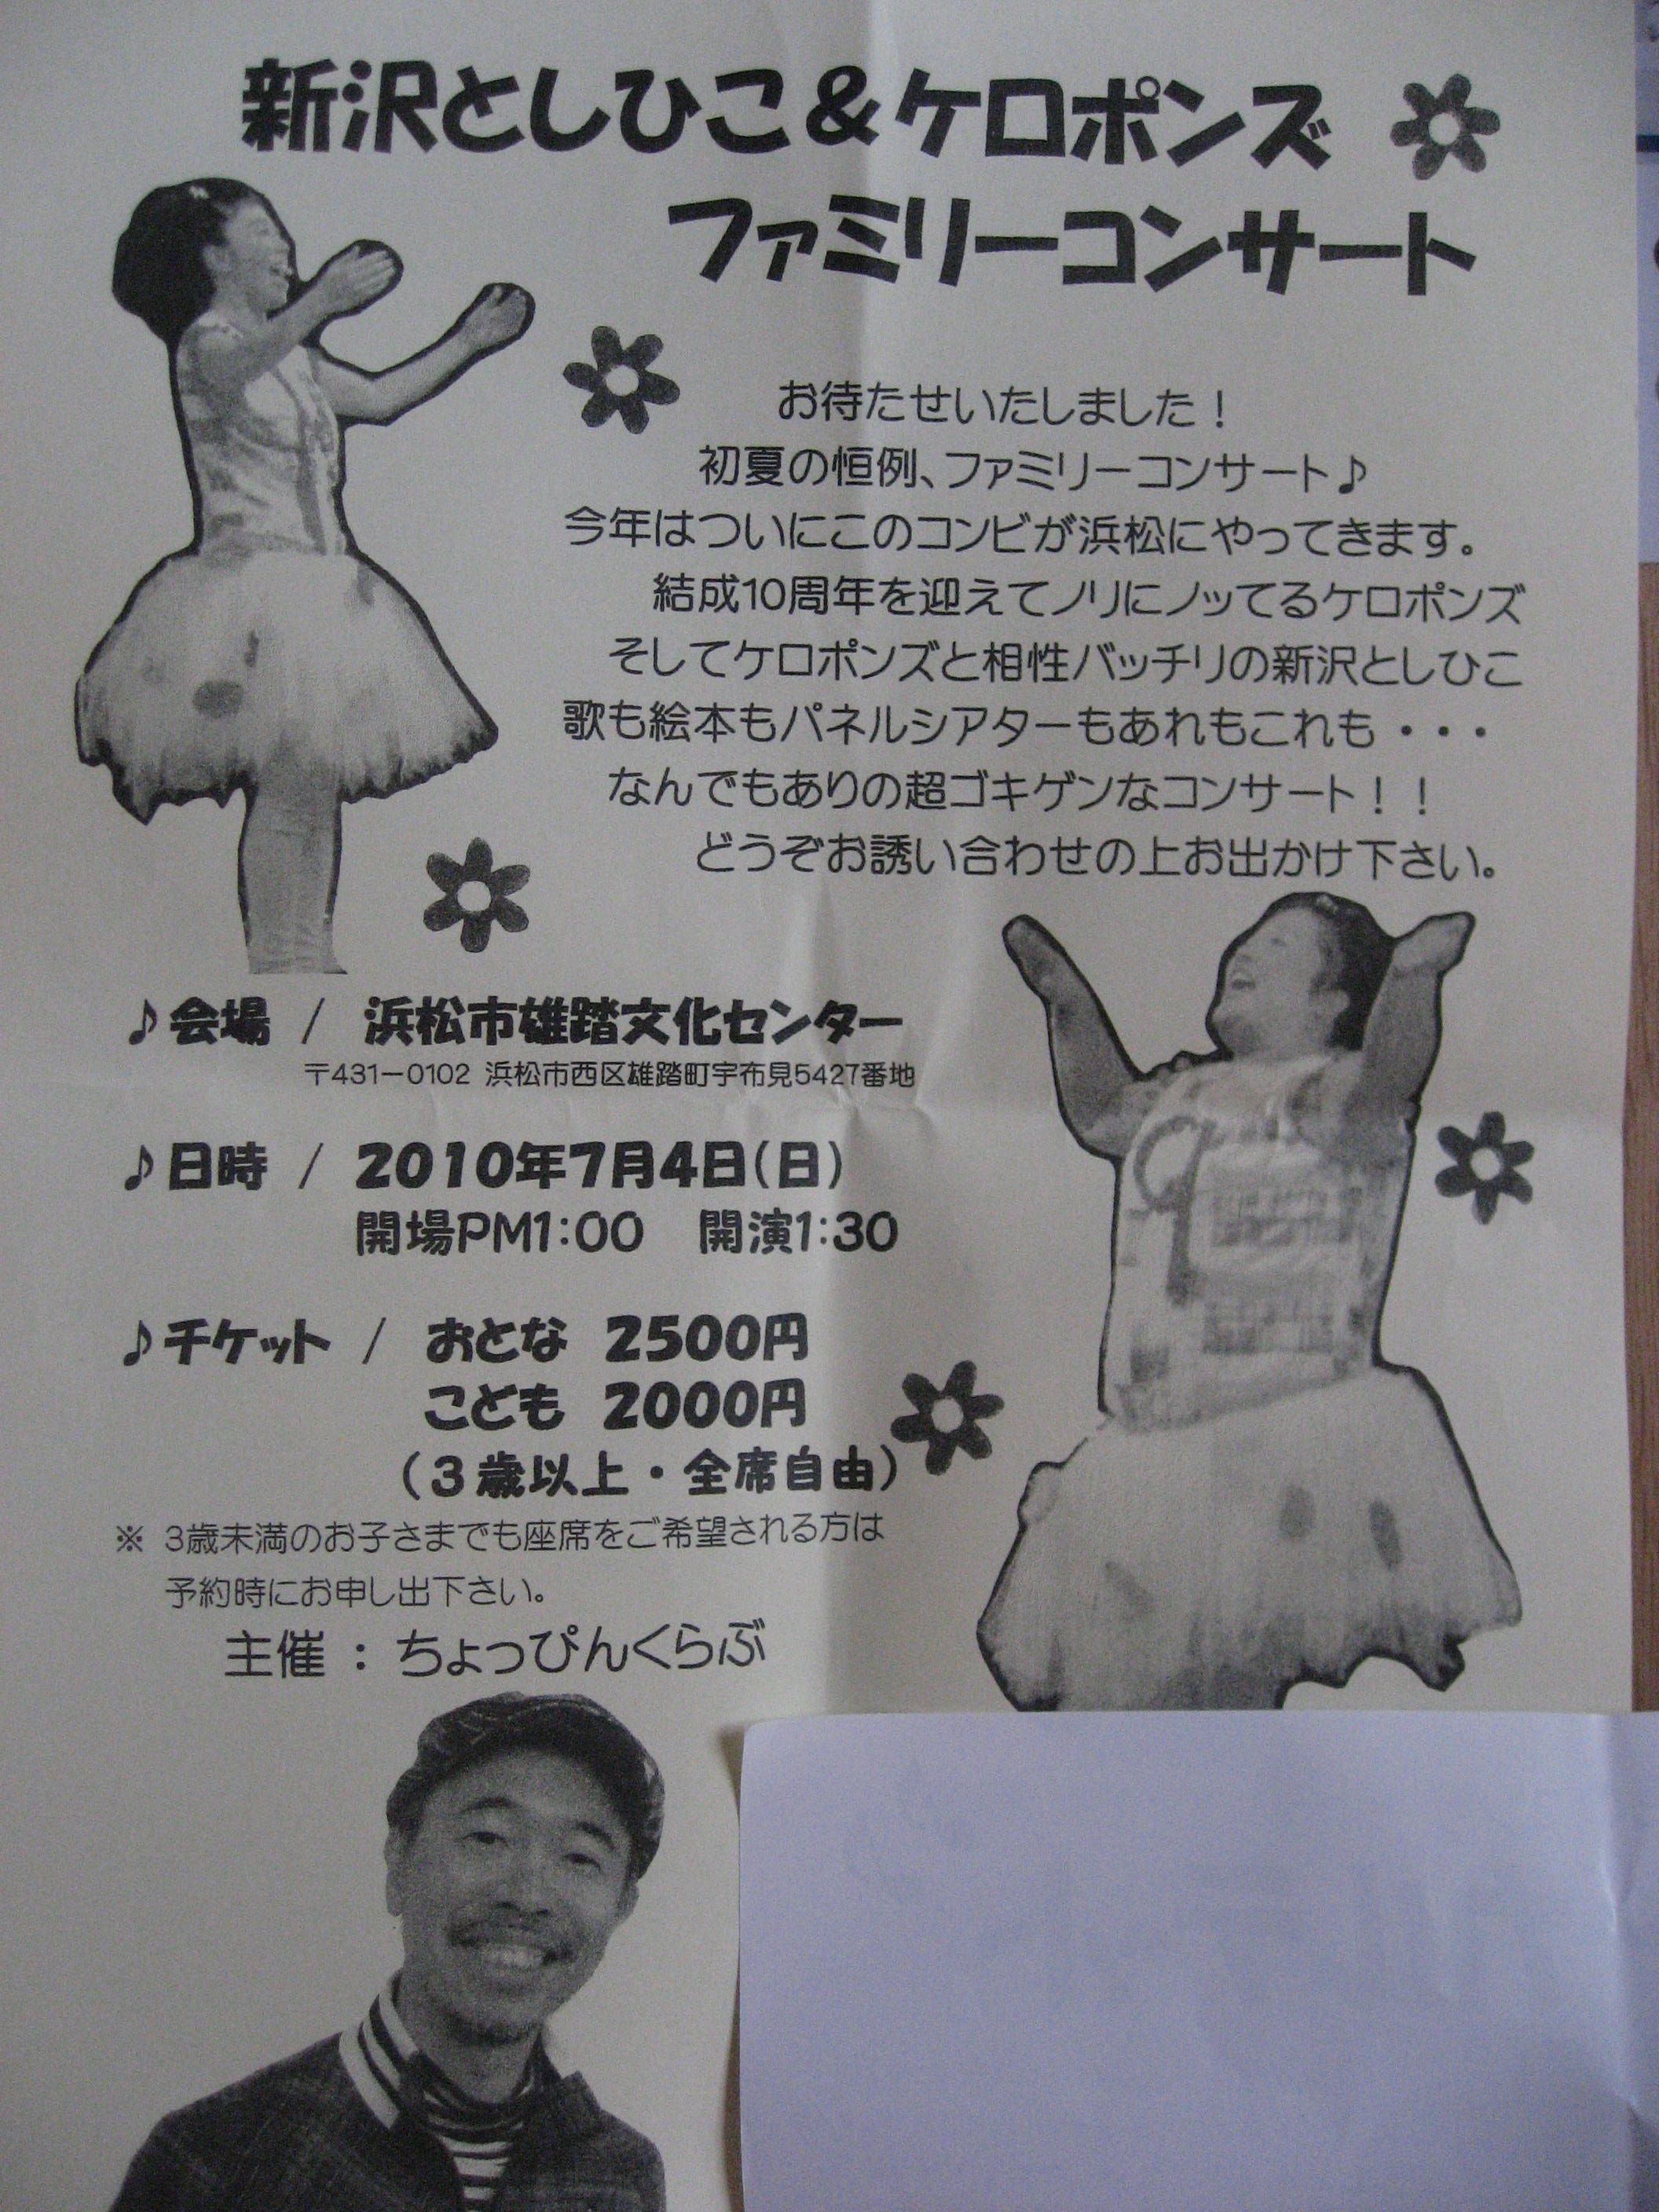 新沢としひこ＆ケロポンズ
ファミリーコンサート
お待たせいたしました！
初夏の恒例、ファミリーコンサート♪
今年はついにこのコンビが浜松にやってきます。
結成10周年を迎えてノリにノッてるケロポンズ
そしてケロポンズと相性バッチリの新沢としひこ
歌も絵本もパネルシアターもあれもこれも・・・
なんでもありの超ゴキゲンなコンサート！！
どうぞお誘い合わせの上お出かけ下さい。
♪会場 / 浜松市雄踏文化センター
〒431－0102 浜松市西区雄踏町宇布見5427番地
♪日時 / 2010年7月4日(日)
開場PM1:00 開演1:30
♪チケット / おとな 2500円
こども 2000円
(３歳以上・全席自由)
※ 3歳未満のお子さまでも座席をご希望される方は
予約時にお申し出下さい。
主催：ちょっぴんくらぶ